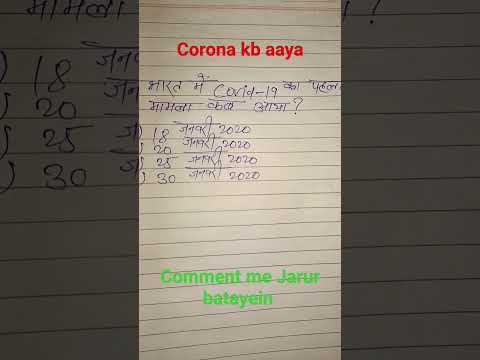 Corona kb aaya
भारत में Covid-19 का पहला
मामला कब आया?
) 18 जनवरी 2020
) 20 जनवरी 2020
) 25 जनवरी 2020
) 30 जनवरी 2020
Comment me Jarur
batayein